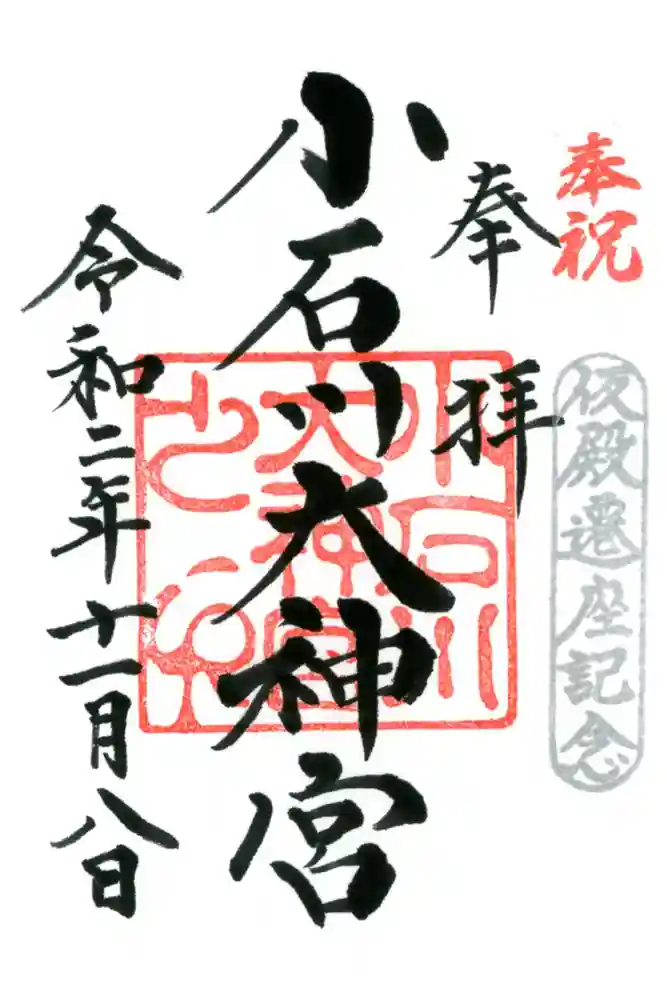 奉祝
仮殿遷座記念
奉拝
小石川大神宮
小石川
大神宮
之印
令和二年十一月八日